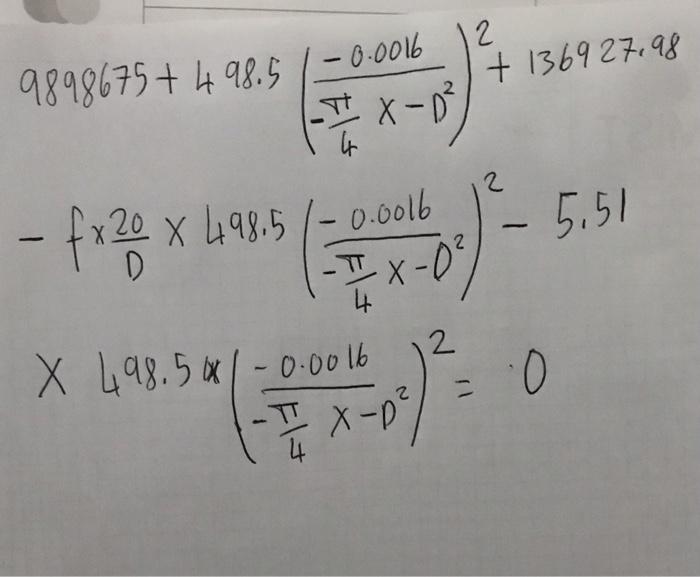 9898675 + 498.5 (-0.0016 / -π/4 × -D²)² + 136927.98
- f × 20/D × 498.5 (-0.0016 / -π/4 × -D²)² - 5.51
× 498.5 × (-0.0016 / -π/4 × -D²)² = 0